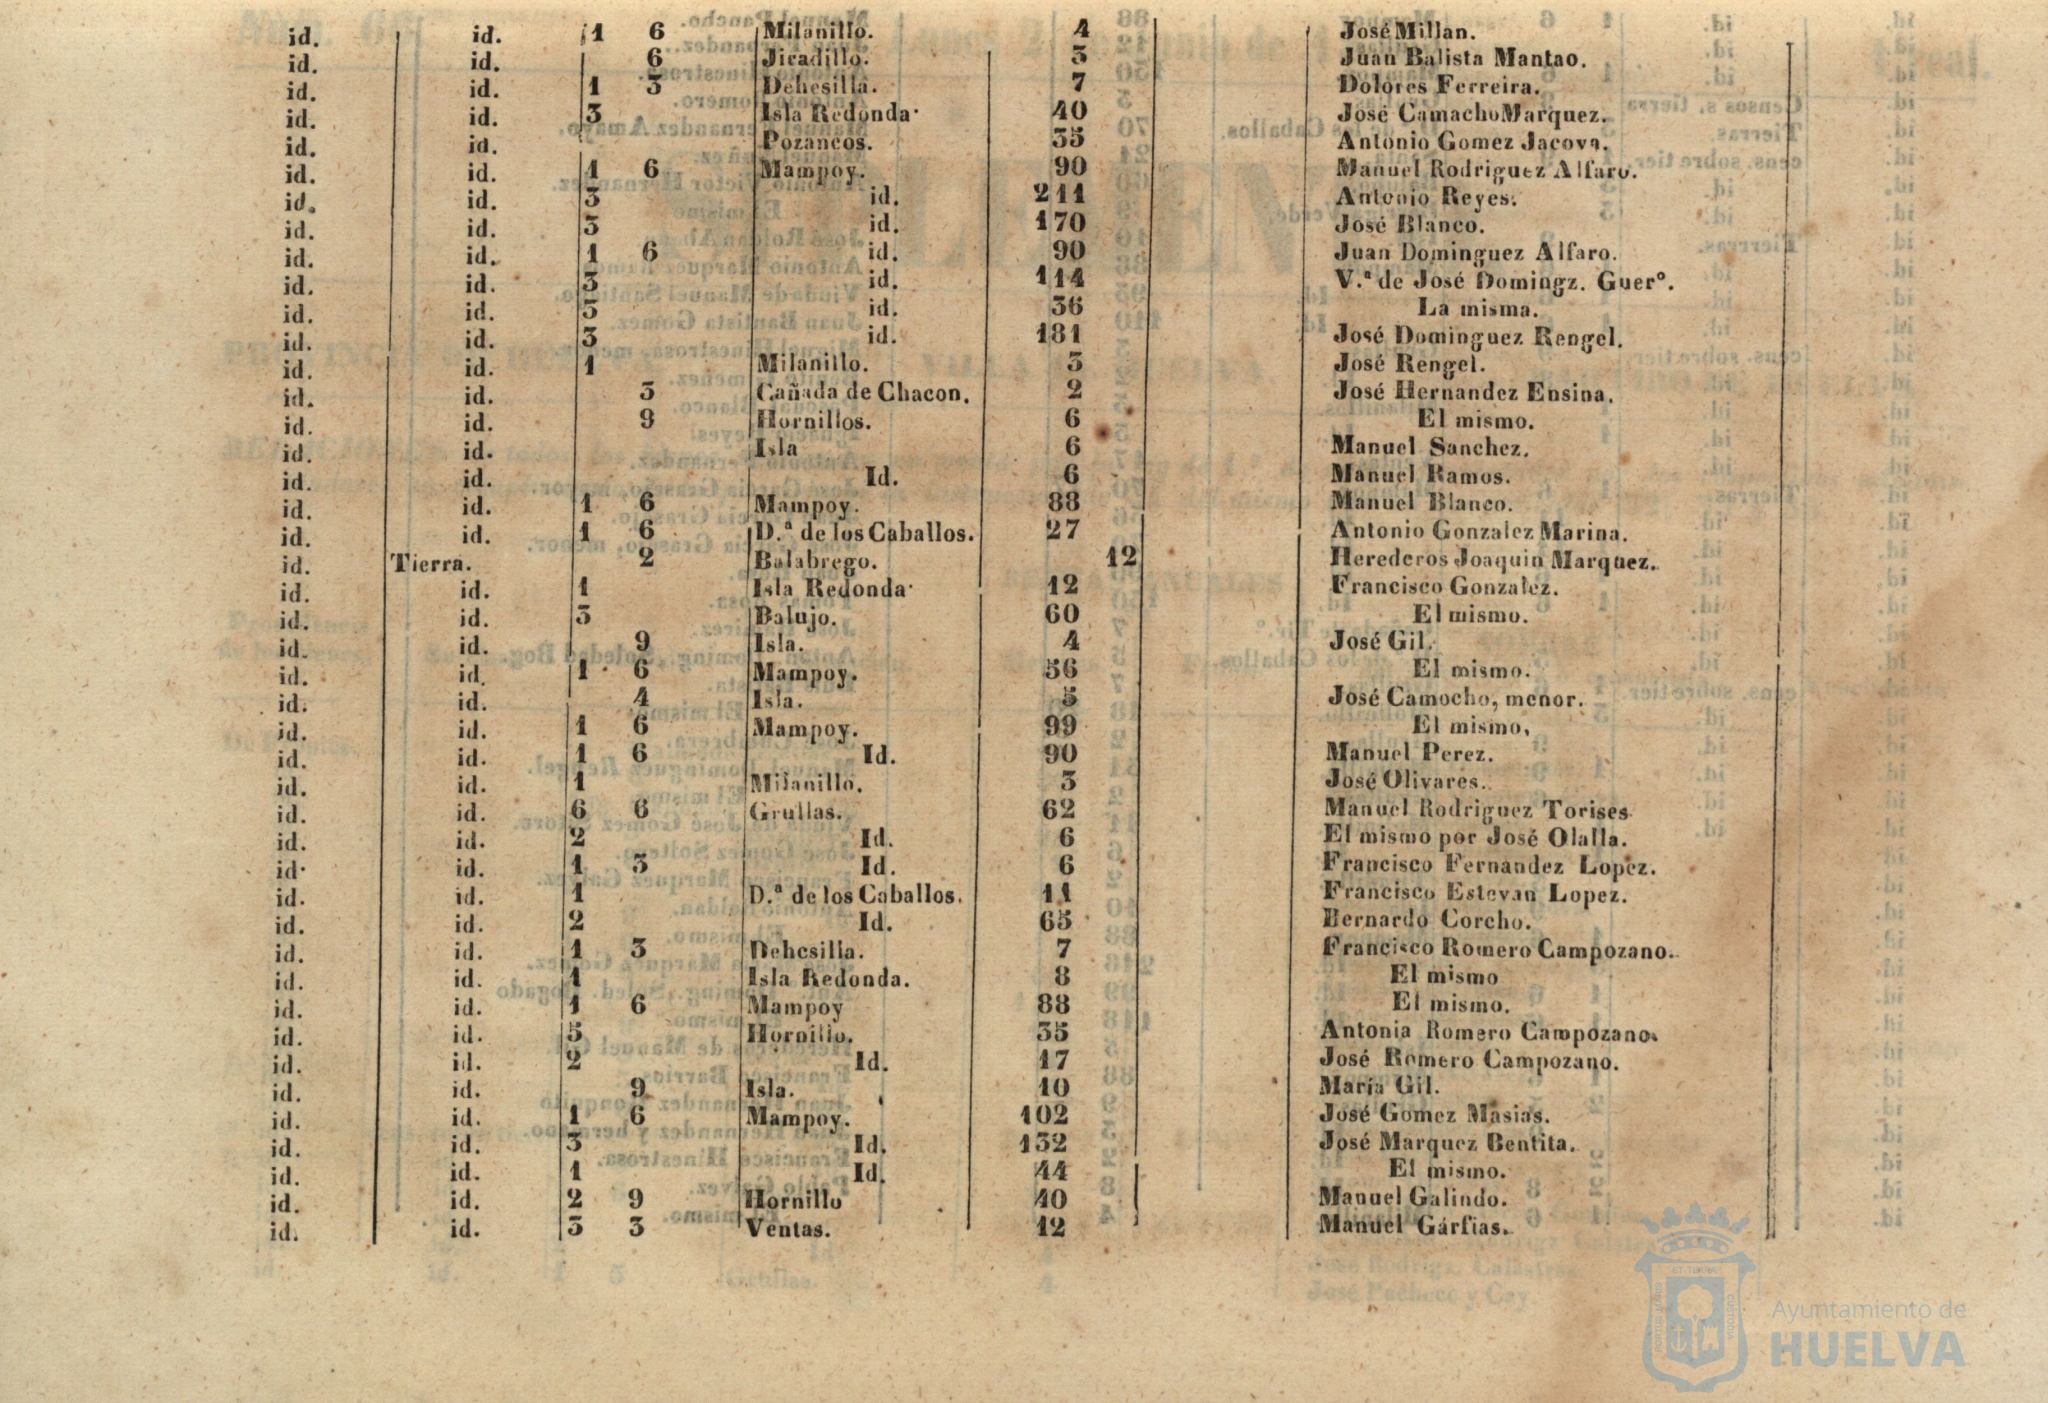 id. id. 1 6 Milanillo. 4 José Millan.
id. id. 6 Jicadillo. 3 Juan Balista Mantao.
id. id. 1 3 Dehesilla. 7 Dolores Ferreira.
id. id. 3 Isla Redonda 40 José Camacho Marquez.
id. id. Pozancos. 35 Antonio Gomez Jacova.
id. id. 1 6 Mampoy. 90 Manuel Rodriguez Alfaro.
id. id. 3 id. 211 Antonio Reyes.
id. id. 3 id. 170 José Blanco.
id. id. 1 6 id. 90 Juan Dominguez Alfaro.
id. id. 3 id. 114 V.ª de José Domingz. Guerº.
id. id. 5 id. 36 La misma.
id. id. 3 id. 181 José Dominguez Rengel.
id. id. 1 Milanillo. 3 José Rengel.
id. id. 3 Cañada de Chacon. 2 José Hernandez Ensina.
id. id. 9 Hornillos. 6 El mismo.
id. id. Isla 6 Manuel Sanchez.
id. id. Id. 6 Manuel Ramos.
id. id. 1 6 Mampoy. 88 Manuel Blanco.
id. id. 1 6 D.ª de los Caballos. 27 Antonio Gonzalez Marina.
id. Tierra. 2 Balabrego. 12 Herederos Joaquin Marquez.
id. id. 1 Isla Redonda 12 Francisco Gonzalez.
id. id. 3 Balujo. 60 El mismo.
id. id. 9 Isla. 4 José Gil.
id. id. 1 6 Mampoy. 56 El mismo.
id. id. 4 Isla. 5 José Camocho, menor.
id. id. 1 6 Mampoy. 99 El mismo,
id. id. 1 6 Id. 90 Manuel Perez.
id. id. 1 Milanillo. 3 José Olivares.
id. id. 6 6 Grullas. 62 Manuel Rodriguez Torises
id. id. 2 Id. 6 El mismo por José Olalla.
id. id. 1 3 Id. 6 Francisco Fernandez Lopez.
id. id. 1 D.ª de los Caballos. 11 Francisco Estevan Lopez.
id. id. 2 Id. 65 Bernardo Corcho.
id. id. 1 3 Dehesilla. 7 Francisco Romero Campozano.
id. id. 1 Isla Redonda. 8 El mismo
id. id. 1 6 Mampoy 88 El mismo.
id. id. 5 Hornillo. 35 Antonia Romero Campozano.
id. id. 2 Id. 17 José Romero Campozano.
id. id. 9 Isla. 10 María Gil.
id. id. 1 6 Mampoy. 102 José Gomez Masias.
id. id. 3 Id. 132 José Marquez Bentita.
id. id. 1 Id. 44 El mismo.
id. id. 2 9 Hornillo 40 Manuel Galindo.
id. id. 3 3 Ventas. 12 Manuel Gárfias.
id. id. 1 3 Grullas. 4 José Rodrigz.
4 José Pacheco y Coy
Ayuntamiento de
HUELVA